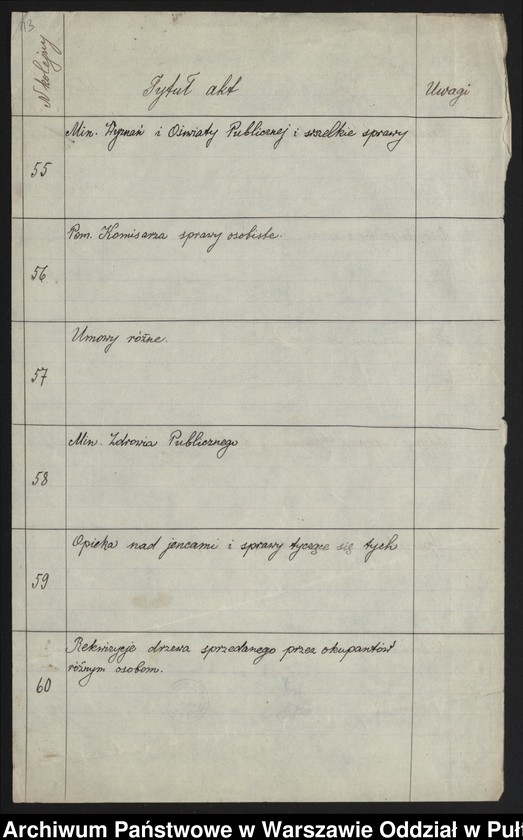 113
N kolejny
Tytuł akt
Uwagi
55
Min. Wyznań i Oświaty Publicznej i wszelkie sprawy
56
Pom. Komisarza sprawy osobiste.
57
Umowy różne.
58
Min. Zdrowia Publicznego
59
Opieka nad jeńcami i sprawy tyczące się tych
60
Rekwizycje drzewa sprzedanego przez okupantów
różnym osobom.
Archiwum Państwowe w Warszawie Oddział w Puł